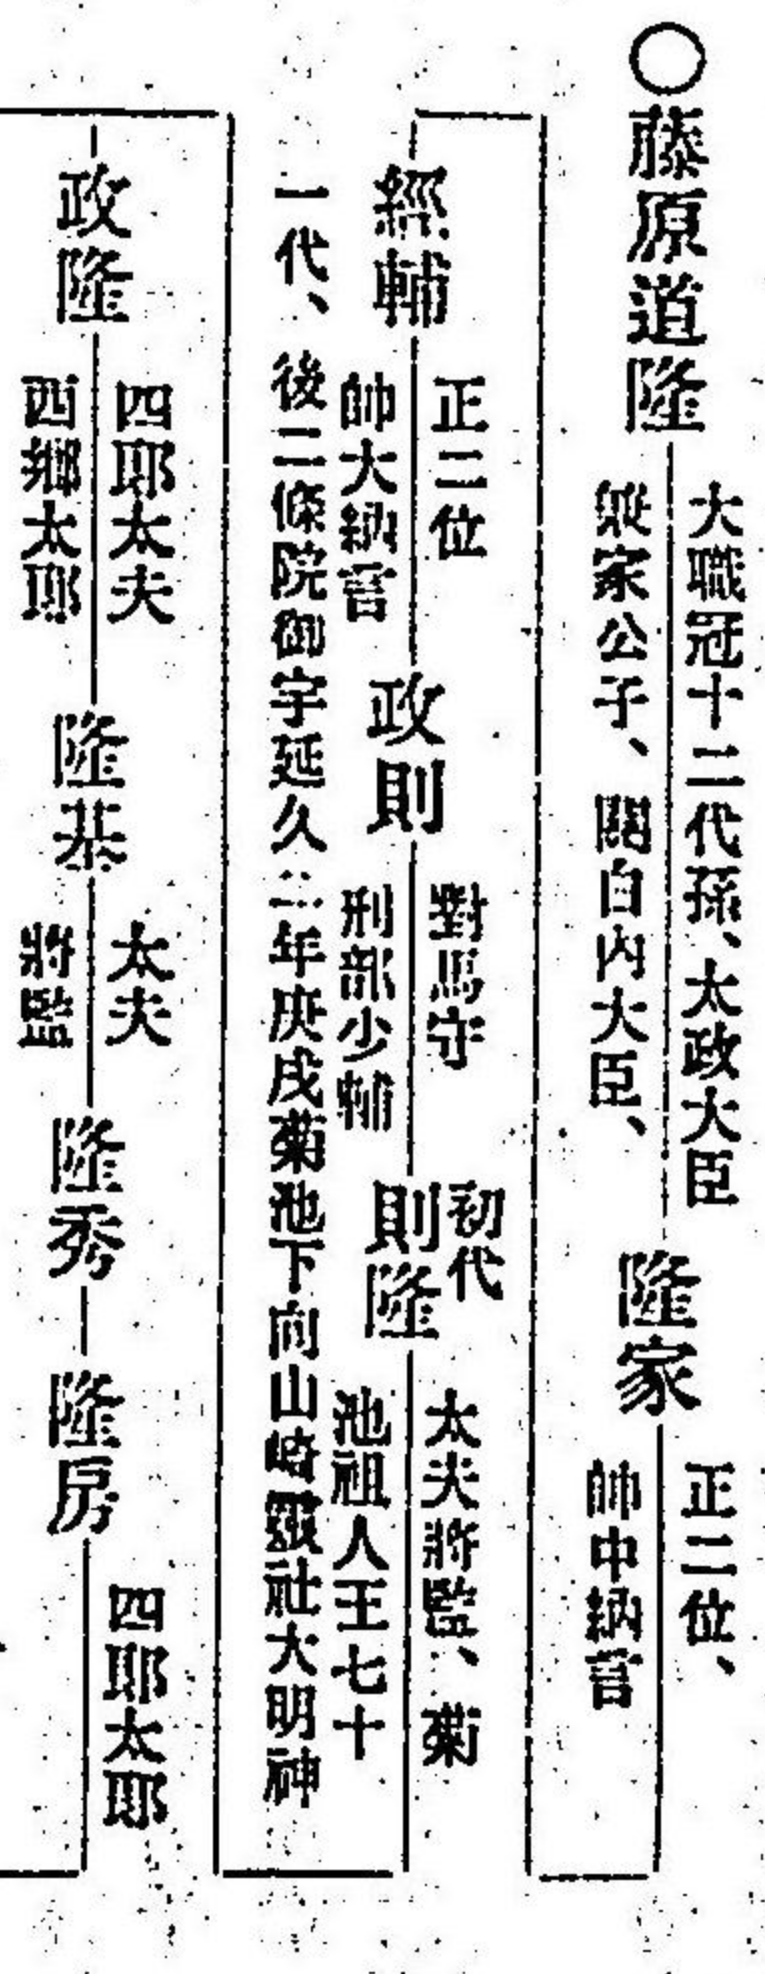 ○藤原道隆
大職冠十二代孫、太政大臣
兼家公子、關白内大臣、
隆家
正二位、
帥中納言
經輔
正二位
帥大納言
政則
對馬守
刑部少輔
初代
則隆
太夫將監、菊
池祖人王七十
一代、後二條院御宇延久二年庚戌菊池下向山崎靈社大明神
政隆
四郎太夫
西郷太郎
隆基
太夫
將監
隆秀
隆房
四郎太郎